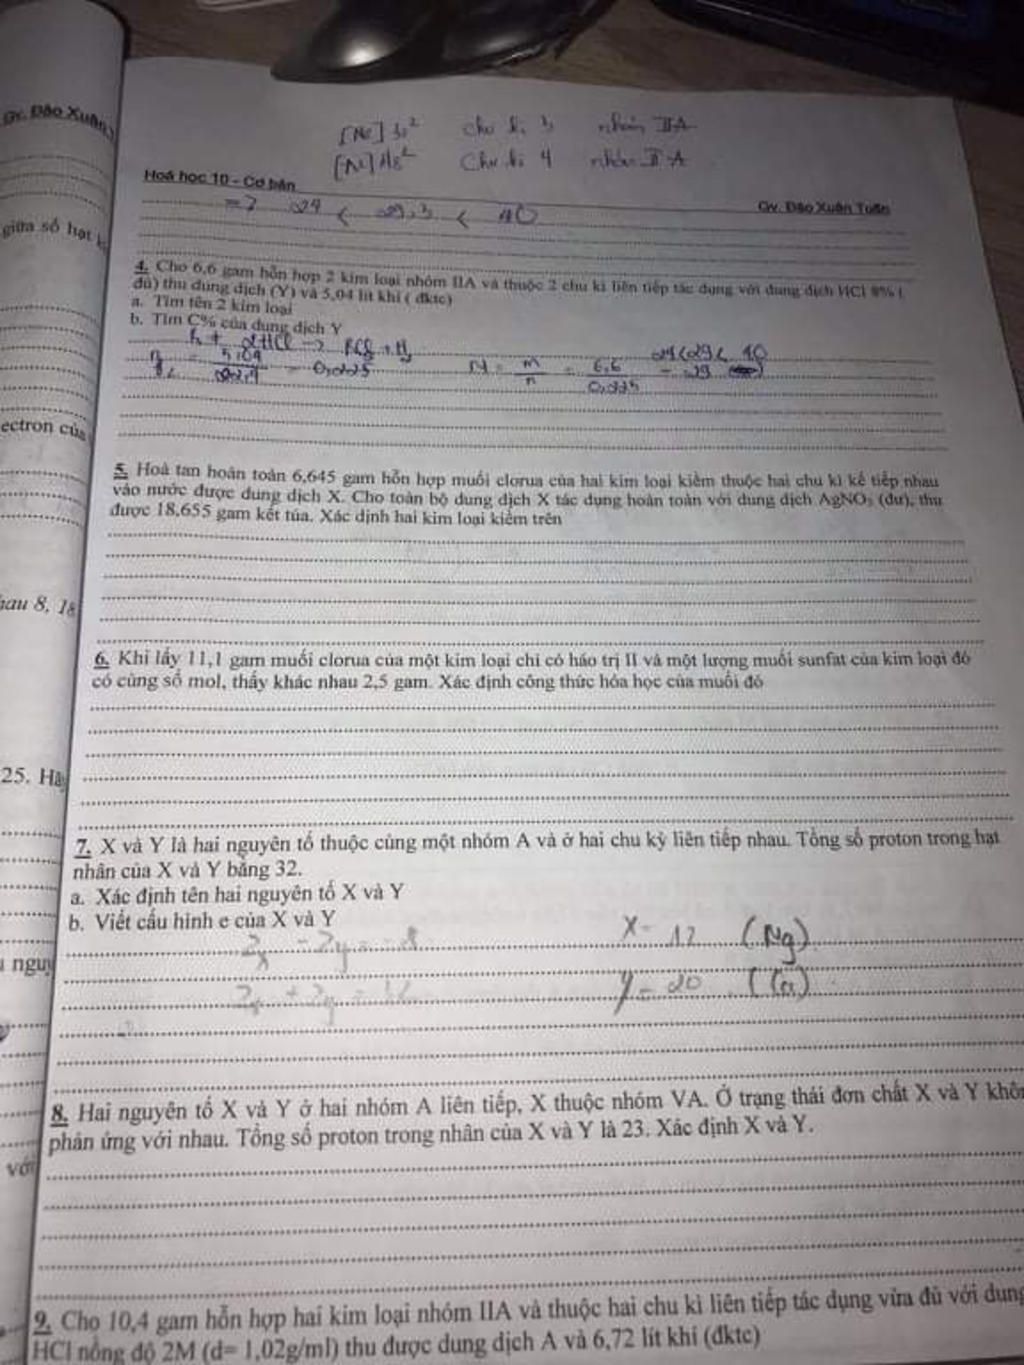 Gv. Đào Xuân
[Ne] 3s² chu kì 3 nhóm IIA
[Ar] 4s² Chu kì 4 nhóm II A
Hoá học 10 - Cơ bản
Gv. Đào Xuân Tuấn
=> 24 < 29,3 < 40
giữa số hạt
4. Cho 6,6 gam hỗn hợp 2 kim loại nhóm IIA và thuộc 2 chu kì liên tiếp tác dụng với dung dịch HCl 8% (
đủ) thu dung dịch (Y) và 5,04 lít khí ( đktc)
a. Tìm tên 2 kim loại
b. Tìm C% của dung dịch Y
R + 2HCl → RCl₂ + H₂
= 5,04 / 22,4 = 0,225
M = m / n = 6,6 / 0,225 = 29
24 < 29 < 40
ectron của
5. Hoà tan hoàn toàn 6,645 gam hỗn hợp muối clorua của hai kim loại kiềm thuộc hai chu kì kế tiếp nhau
vào nước được dung dịch X. Cho toàn bộ dung dịch X tác dụng hoàn toàn với dung dịch AgNO₃ (dư), thu
được 18,655 gam kết tủa. Xác định hai kim loại kiềm trên
hau 8, 18
6. Khi lấy 11,1 gam muối clorua của một kim loại chỉ có háo trị II và một lượng muối sunfat của kim loại đó
có cùng số mol, thấy khác nhau 2,5 gam. Xác định công thức hóa học của muối đó
25. Hã
7. X và Y là hai nguyên tố thuộc cùng một nhóm A và ở hai chu kỳ liên tiếp nhau. Tổng số proton trong hạt
nhân của X và Y bằng 32.
a. Xác định tên hai nguyên tố X và Y
b. Viết cấu hình e của X và Y
X = 12 (Mg)
Y = 20 (Ca)
nguy
8. Hai nguyên tố X và Y ở hai nhóm A liên tiếp, X thuộc nhóm VA. Ở trạng thái đơn chất X và Y khôn
phản ứng với nhau. Tổng số proton trong nhân của X và Y là 23. Xác định X và Y.
với
9. Cho 10,4 gam hỗn hợp hai kim loại nhóm IIA và thuộc hai chu kì liên tiếp tác dụng vừa đủ với dung
HCl nồng độ 2M (d= 1,02g/ml) thu được dung dịch A và 6,72 lít khí (đktc)